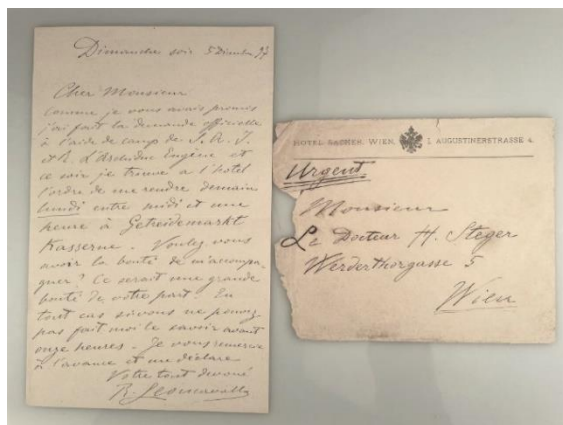 Dimanche soir 5 Dicembre 97
Cher Monsieur
Comme je vous avais promis
j'ai fait la demande officielle
à l'aide de camp de S. A. I.
et R. L'Archiduc Eugène et
ce soir je trouve a l'hotel
l'ordre de me rendre demain
lundi entre midi et une
heure à Getreidemarkt
Kasserne. Voulez vous
avoir la bonté de m'accompa-
gner? Ce serait une grande
bonté de votre part. En
tout cas si vous ne pouvez
pas fait moi le savoir avant
onze heures. Je vous remercie
à l'avance et me déclare
Votre tout devoué
R. Leoncavallo
HOTEL SACHER, WIEN, I. AUGUSTINERSTRASSE 4.
Urgent
Monsieur
Le Docteur H. Steger
Werderthorgasse 5
Wien